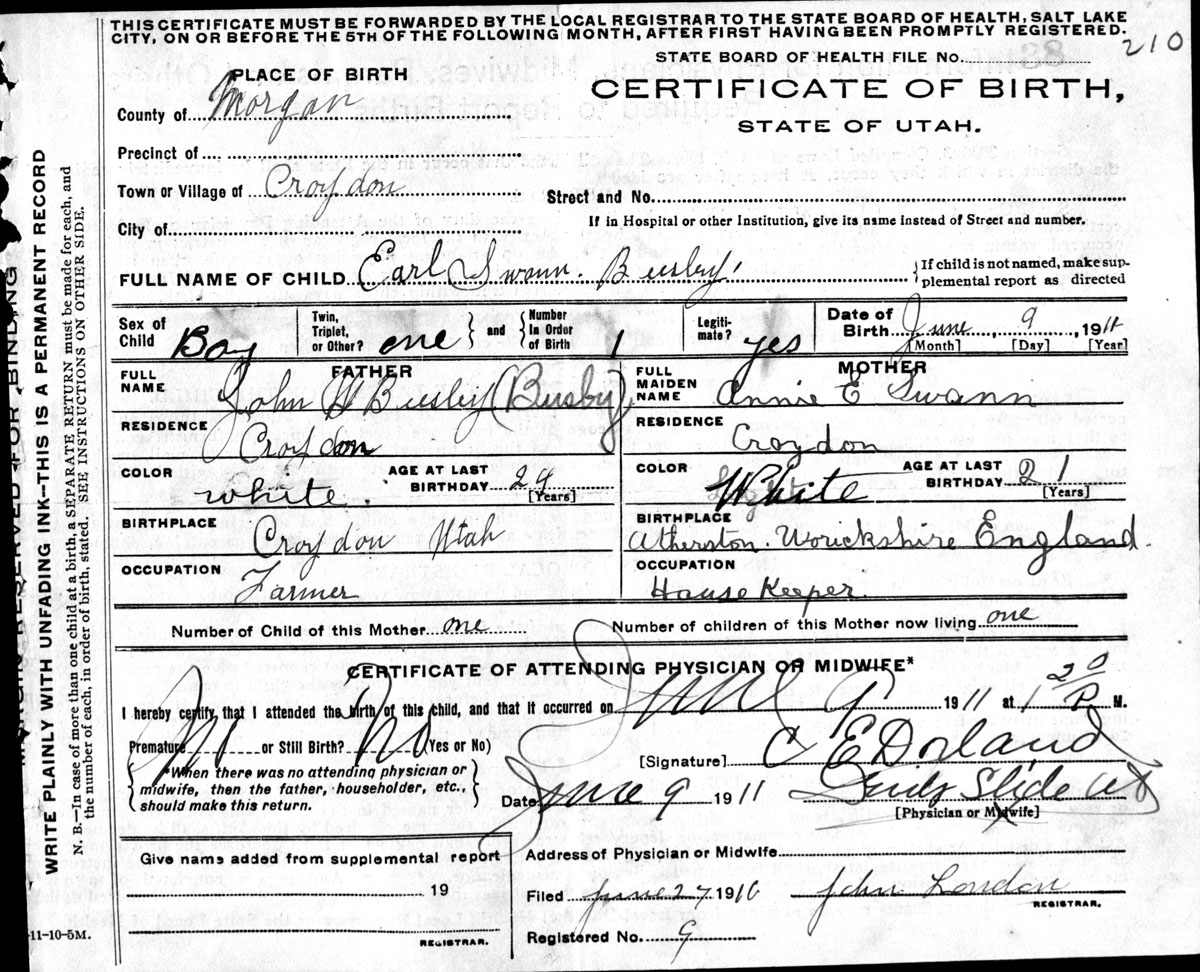 THIS CERTIFICATE MUST BE FORWARDED BY THE LOCAL REGISTRAR TO THE STATE BOARD OF HEALTH, SALT LAKE
CITY, ON OR BEFORE THE 5TH OF THE FOLLOWING MONTH, AFTER FIRST HAVING BEEN PROMPTLY REGISTERED.
210
STATE BOARD OF HEALTH FILE No.
PLACE OF BIRTH
County of Morgan
CERTIFICATE OF BIRTH,
STATE OF UTAH.
Precinct of
Town or Village of Croydon
Street and No.
City of
If in Hospital or other Institution, give its name instead of Street and number.
FULL NAME OF CHILD Earl Swann. Busby
{If child is not named, make sup-
plemental report as directed
Sex of Child Boy
Twin, Triplet, or Other? one } and { Number In Order of Birth 1
Legiti-mate? yes
Date of Birth June 9, 1911
[Month] [Day] [Year]
FATHER
FULL NAME John W Busby (Busby)
MOTHER
FULL MAIDEN NAME Annie E Swann
RESIDENCE Croydon
RESIDENCE Croydon
COLOR white.
AGE AT LAST BIRTHDAY 29 [Years]
COLOR White
AGE AT LAST BIRTHDAY 21 [Years]
BIRTHPLACE Croydon Utah
BIRTHPLACE Atherston. Worickshire England.
OCCUPATION Farmer
OCCUPATION House Keeper.
Number of Child of this Mother one
Number of children of this Mother now living one
CERTIFICATE OF ATTENDING PHYSICIAN OR MIDWIFE*
I hereby certify that I attended the birth of this child, and that it occurred on June 9 1911 at 1 20 P. M.
Premature No or Still Birth? No (Yes or No)
{*When there was no attending physician or midwife, then the father, householder, etc., should make this return.}
[Signature] C E Dorland
Date June 9 1911
Devils Slide Ut
[Physician or Midwife]
Give name added from supplemental report
19
REGISTRAR.
Address of Physician or Midwife
Filed June 27 1910 John London
REGISTRAR.
Registered No. 9
-11-10-5M.
MARGIN RESERVED FOR BINDING
WRITE PLAINLY WITH UNFADING INK—THIS IS A PERMANENT RECORD
N. B.—In case of more than one child at a birth, a SEPARATE RETURN must be made for each, and
the number of each, in order of birth, stated. SEE INSTRUCTIONS ON OTHER SIDE.